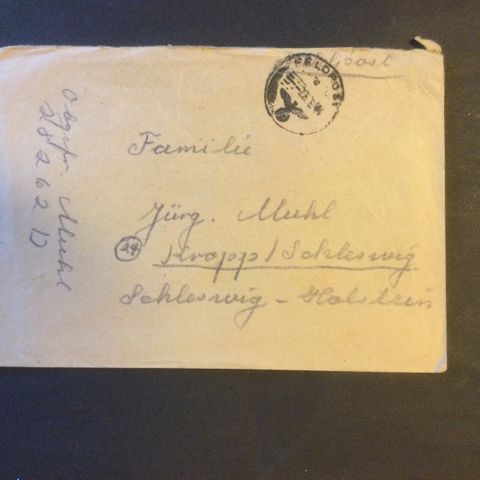 Feldpost
FELDPOST
Familie
Jürg. Muhl
24 Kropp/Schleswig
Schleswig-Holstein
Obgefr. Muhl
28262 D